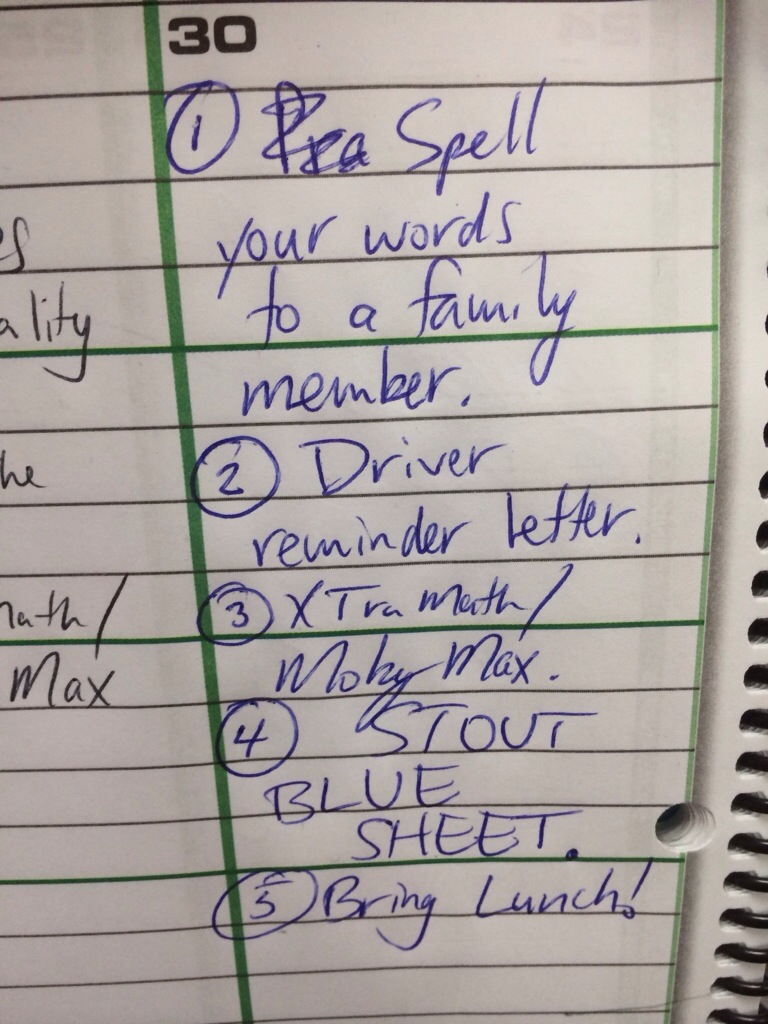 30
① Spell
your words
to a family
member.
② Driver
reminder letter.
③ XTra Math/
Moby Max.
④ STOUT
BLUE
SHEET.
⑤ Bring Lunch!
ality
he
Math/
Max